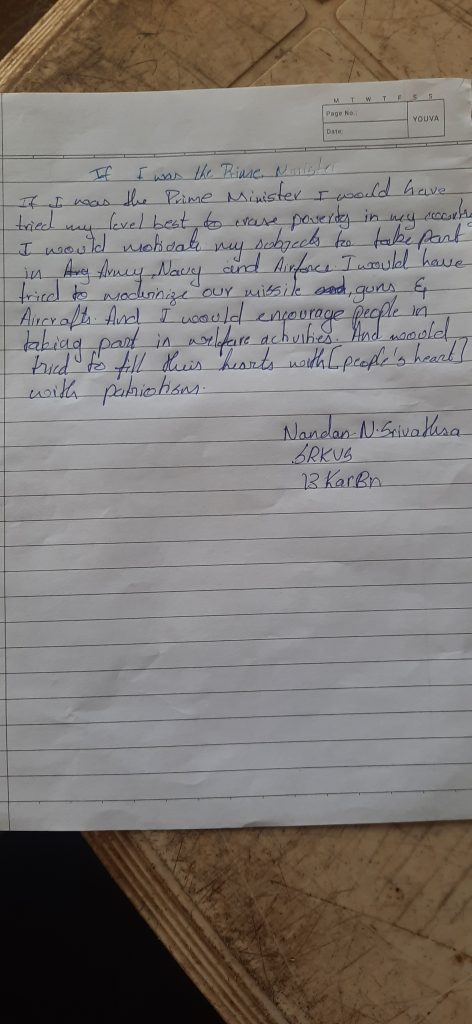 M T W T F S S
Page No.:
Date:
YOUVA
If I was the Prime Minister
If I was the Prime Minister I would have
tried my level best to erase poverty in my country
I would motivate my subjects to take part
in Army, Navy and Airforce I would have
tried to modurnize our missile guns &
Aircrafts. And I would encourage people in
taking part in welfare activities. And woould
tried to fill their hearts with [people's heart]
with patriotism.
Nandan.N.Srivathsa
SRKVS
13 Kar Bn